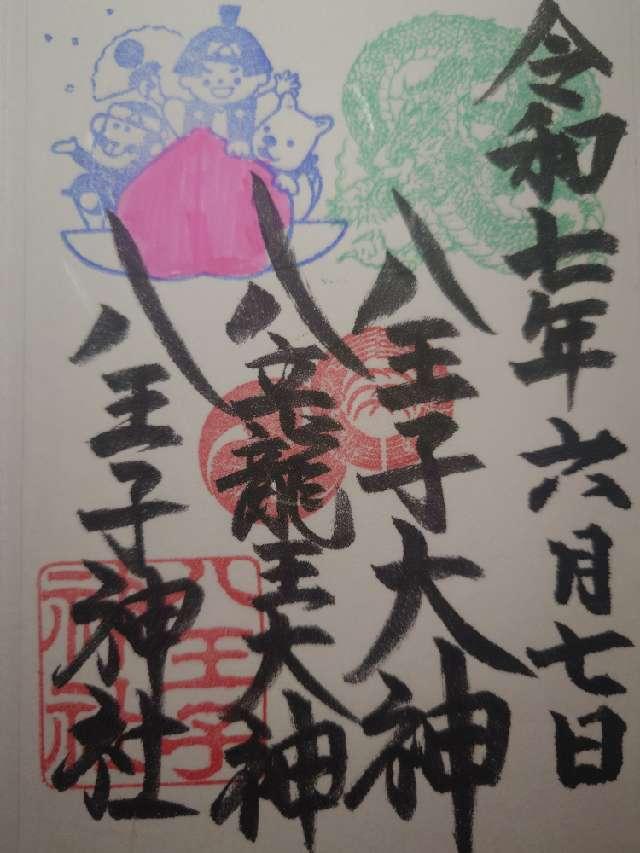 令和七年六月七日
八王子大神
八大龍王大神
八王子神社
八王子神社